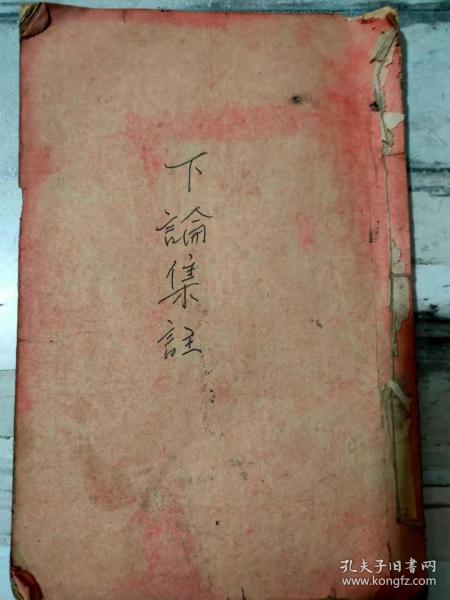 下論集註
孔夫子旧书网
www.kongfz.com